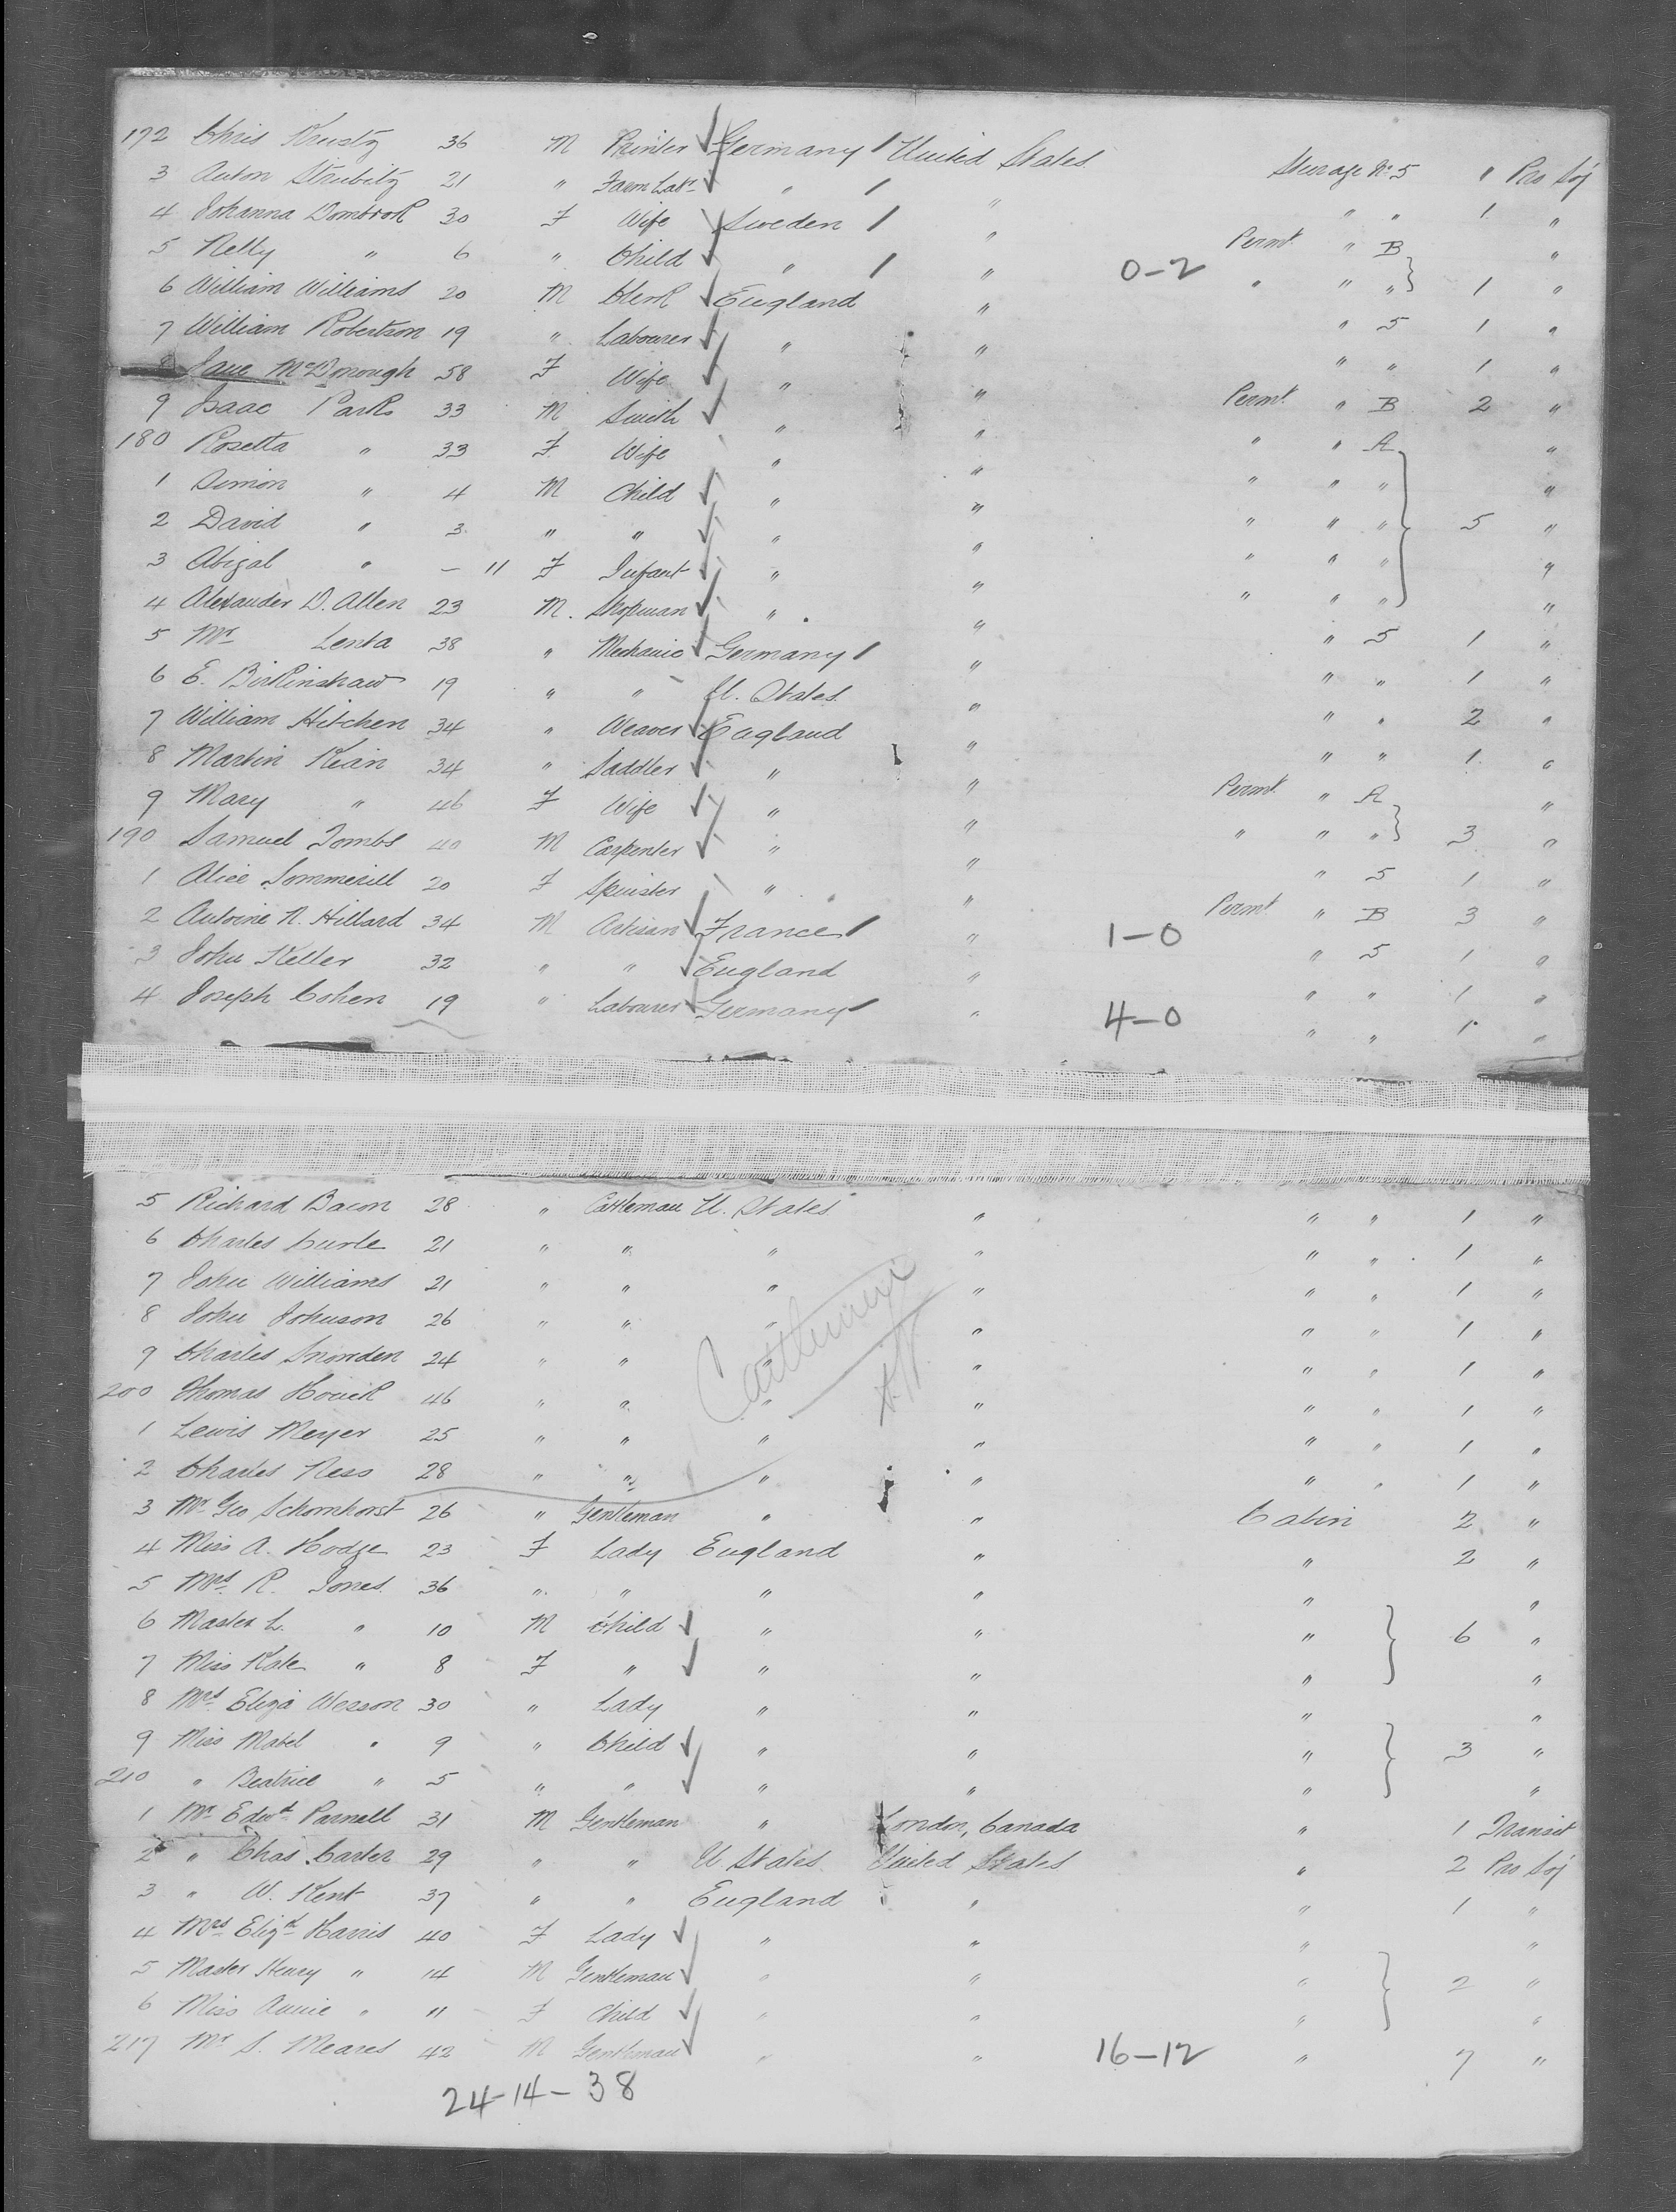 172 Chris Krusty 36 M Printer Germany United States Steerage No 5 " Pro Soj
3 Anton Strubitz 21 " Farm Labr " " " " 1 "
4 Johanna Dombrock 30 F Wife Sweden " Permt " B "
5 Nelly " 6 " Child " " 0-2 " " " 1 "
6 William Williams 20 M Clerk England " " 5 1 "
7 William Robertson 19 " Labourer " " " " 1 "
8 Jane McDonough 58 F Wife " " Permt " B 2 "
9 Isaac Parks 33 M Smith " " " " A "
180 Rosetta " 33 F Wife " " " " " "
1 Simon " 4 M Child " " " " " 5 "
2 David " 3 " " " " " " " "
3 Abigal " - 11 F Infant " " " " " "
4 Alexander D. Allen 23 M. Shopman " " " 5 1 "
5 Mr Lenta 38 " Mechanic Germany " " " 1 "
6 E. Birkinshaw 19 " " U. States " " " 2 "
7 William Hitchen 34 " Weaver England " " " 1 "
8 Martin Kean 34 " Saddler " " Permt " A "
9 Mary " 46 F Wife " " " " " 3 "
190 Samuel Tombs 40 M Carpenter " " " 5 1 "
1 Alice Sommerill 20 F Spinster " " Permt " B 3 "
2 Antoine N. Hillard 34 M Artisan France " 1-0 " 5 1 "
3 John Keller 32 " " England " " " 1 "
4 Joseph Cohen 19 " Labourer Germany " 4-0 " " 1 "
5 Richard Bacon 28 " Cattleman U. States " " " 1 "
6 Charles Curle 21 " " " " " " 1 "
7 John Williams 21 " " " " " " 1 "
8 John Johnson 26 " " " " " " 1 "
Cattlemen
9 Charles Snowden 24 " " " " " " 1 "
200 Thomas Houck 46 " " " " " " 1 "
1 Lewis Meyer 25 " " " " " " 1 "
2 Charles Ness 28 " " " " " " 1 "
3 Mr Geo Schornhorst 26 " Gentleman " " Cabin 2 "
4 Miss A. Hodge 23 F Lady England " " 2 "
5 Mrs R. Jones 36 " " " " " "
6 Master L. " 10 M Child " " " 6 "
7 Miss Kate " 8 F " " " " "
8 Mrs Eliza Wesson 30 " Lady " " " "
9 Miss Mabel " 9 " Child " " " 3 "
210 " Beatrice " 5 " " " " " "
1 Mr Edwd Parnell 31 M Gentleman " London, Canada " 1 Transit
2 " Chas Carter 29 " " U States United States " 2 Pro Soj
3 " W. Kent 37 " " England " " 1 "
4 Mrs Elizth Harris 40 F Lady " " " "
5 Master Henry " 14 M Gentleman " " " 2 "
6 Miss Annie " 11 F Child " " " "
217 Mr S. Meares 42 M Gentleman " " 16-12 " 7 "
24-14-38